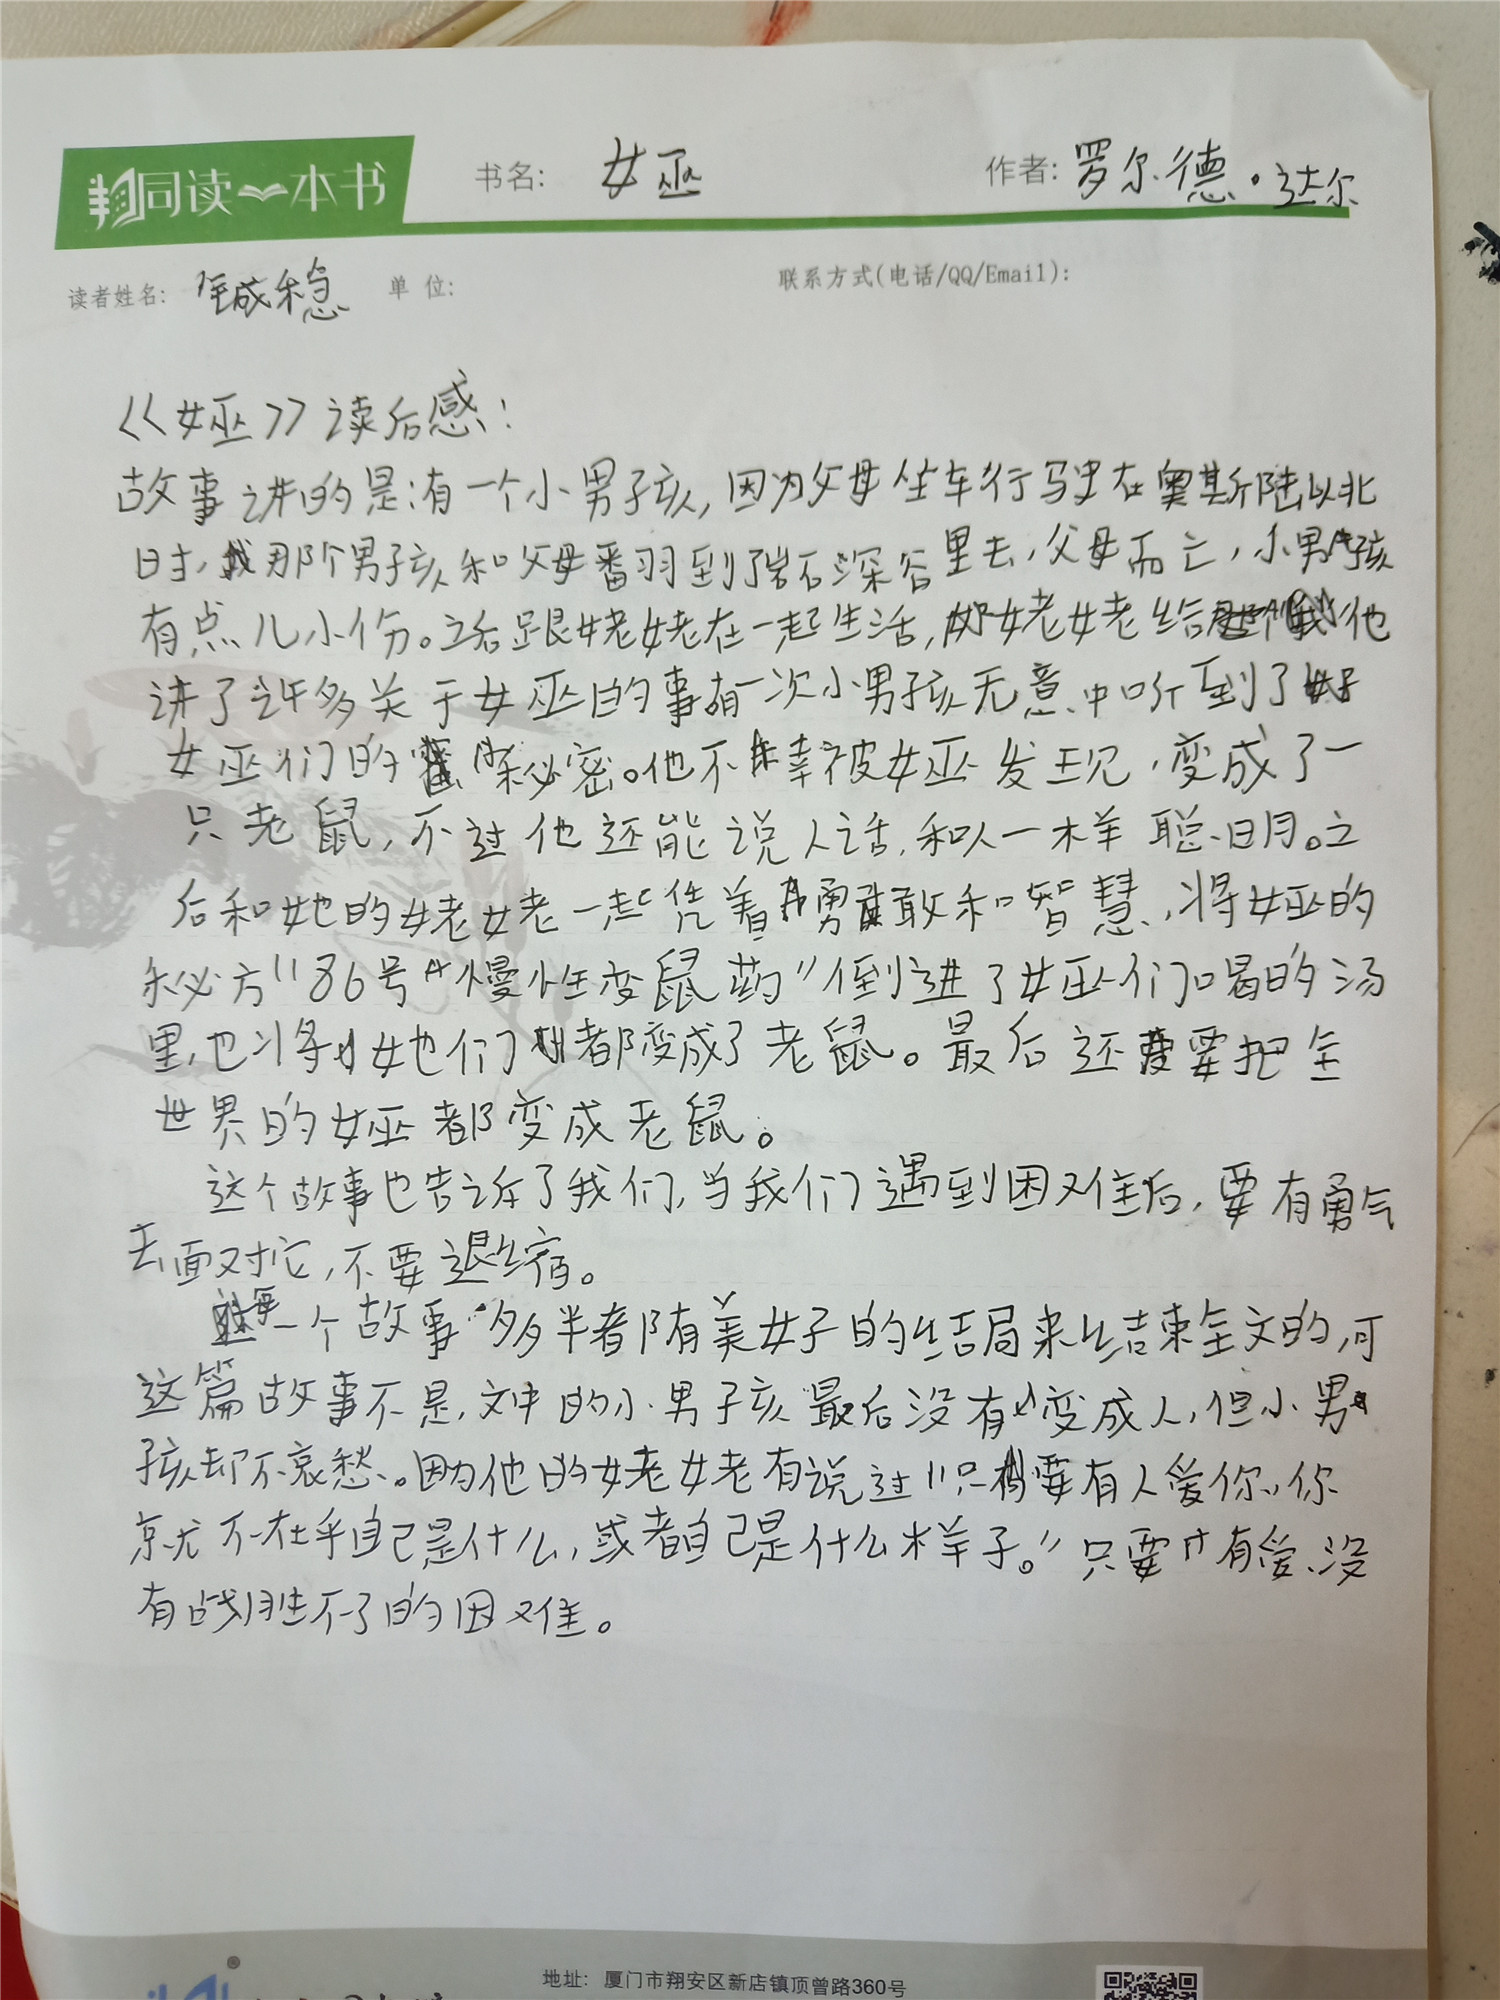 同读一本书
书名: 女巫
作者: 罗尔德·达尔
读者姓名: 成稳
单位:
联系方式(电话/QQ/Email):
《女巫》读后感：
故事讲的是:有一个小男孩,因为父母坐车行驶在奥斯陆以北
时,那个男孩和父母翻到了岩石深谷里去,父母而亡,小男孩
有点儿小伤。之后跟姥姥在一起生活,姥姥给他
讲了许多关于女巫的事。有一次小男孩无意中听到了
女巫们的秘密。他不幸被女巫发现,变成了一
只老鼠,不过他还能说人话,和人一样聪明。之
后和她的姥姥一起凭着勇敢和智慧,将女巫的
秘方“86号慢性变鼠药”倒进了女巫们喝的汤
里,也将她们都变成了老鼠。最后还要把全
世界的女巫都变成老鼠。
这个故事也告诉了我们,当我们遇到困难后,要有勇气
去面对它,不要退缩。
每一个故事多半都有美好的结局来结束全文的,可
这篇故事不是,文中的小男孩最后没有变成人,但小男
孩却不哀愁。因为他的姥姥有说过“只要有人爱你,你
就不在乎自己是什么,或者自己是什么样子。”只要有爱、没
有战胜不了的困难。
地址: 厦门市翔安区新店镇顶曾路360号